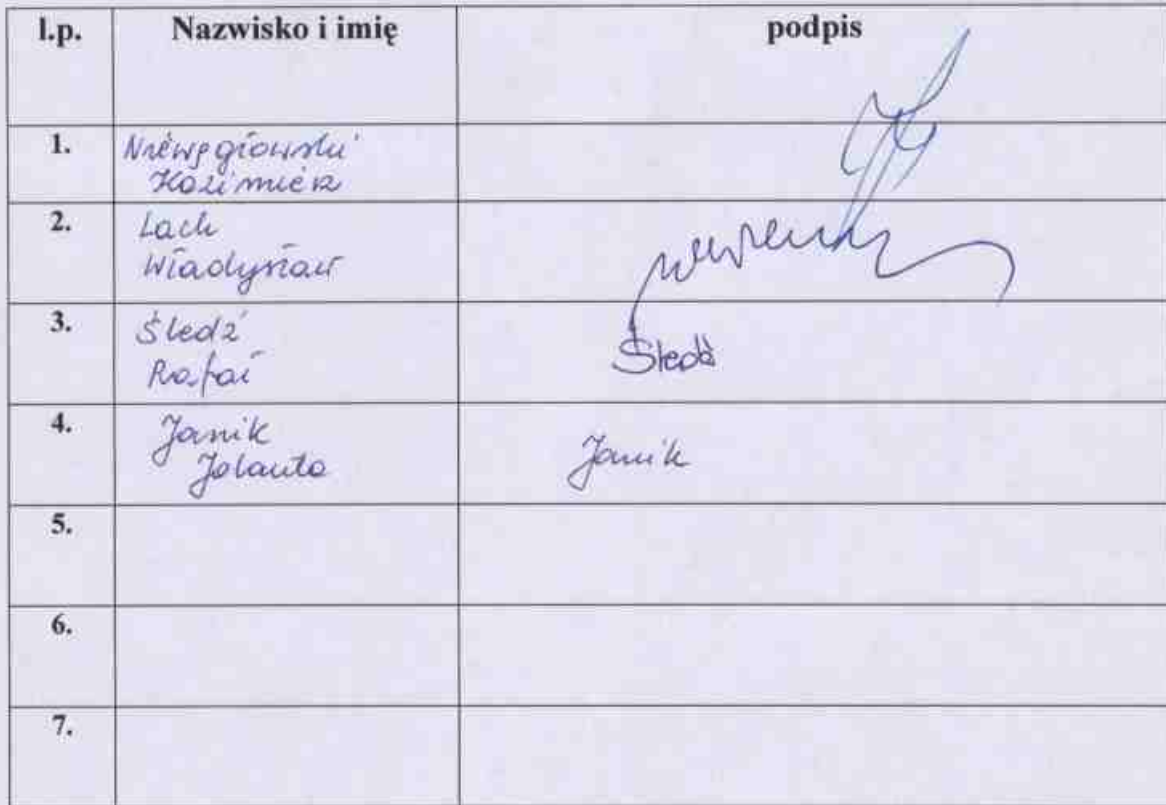 l.p. Nazwisko i imię podpis
1. Niewęgłowski
Kazimierz
2. Lach
Władysław
3. Śledź
Rafał
Śledź
4. Janik
Jolanta
Janik
5.
6.
7.